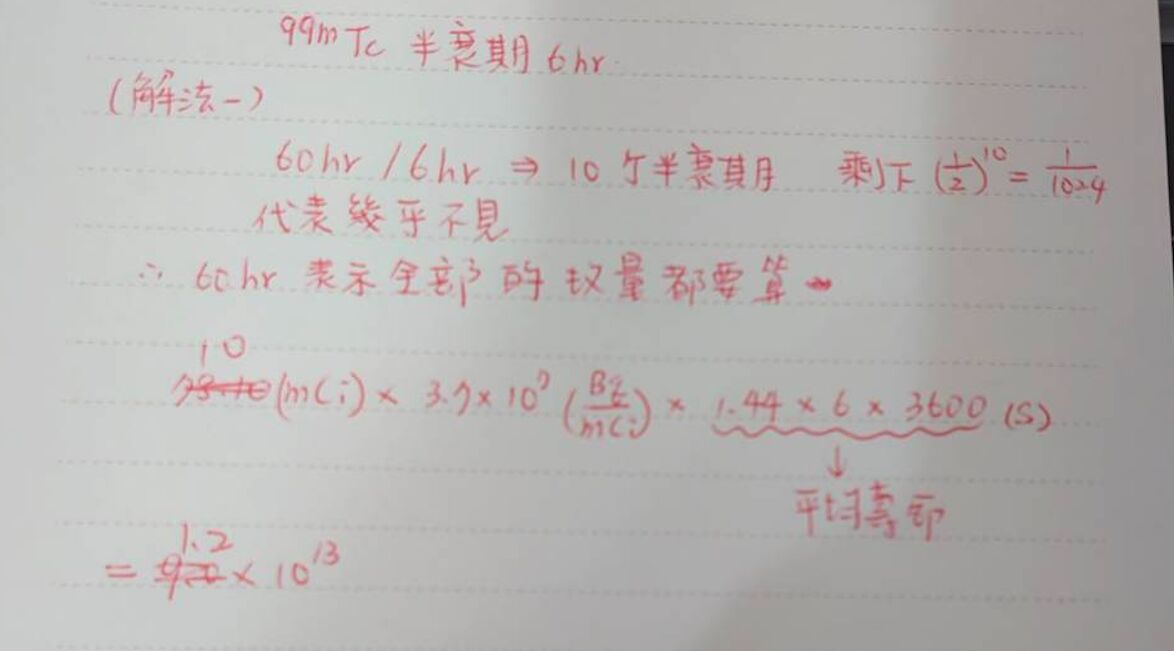 99m Tc 半衰期 6 hr.
(解法一)
60 hr / 6 hr ⇒ 10 个半衰期 剩下 (1/2)^10 = 1/1024
代表幾乎不見
∴ 60 hr 表示全部的 量都要算
10
(mCi) × 3.7 × 10^7 (Bq/mCi) × 1.44 × 6 × 3600 (S)
↓
平均壽命
1.2
= × 10^13